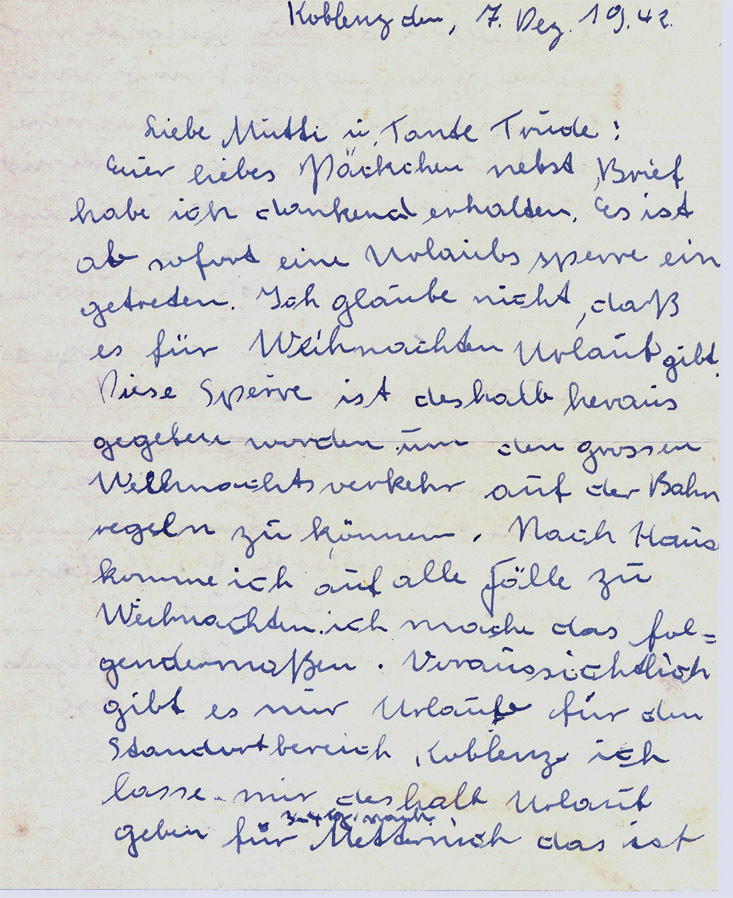 Koblenz den, 7. Dez. 1942.
Liebe Mutti u. Tante Trude!
Euer liebes Päckchen nebst Brief
habe ich dankend erhalten. Es ist
ab sofort eine Urlaubssperre ein
getreten. Ich glaube nicht, daß
es für Weihnachten Urlaub gibt.
Diese Sperre ist deshalb heraus
gegeben worden um den grossen
Weihnachtsverkehr auf der Bahn
regeln zu können. Nach Haus
komme ich auf alle Fälle zu
Weihnachten. ich mache das fol=
gendermaßen. Voraussichtlich
gibt es nur Urlaub für den
Standortbereich Koblenz ich
lasse mir deshalb Urlaub
3-4 nach
geben für Metternich das ist